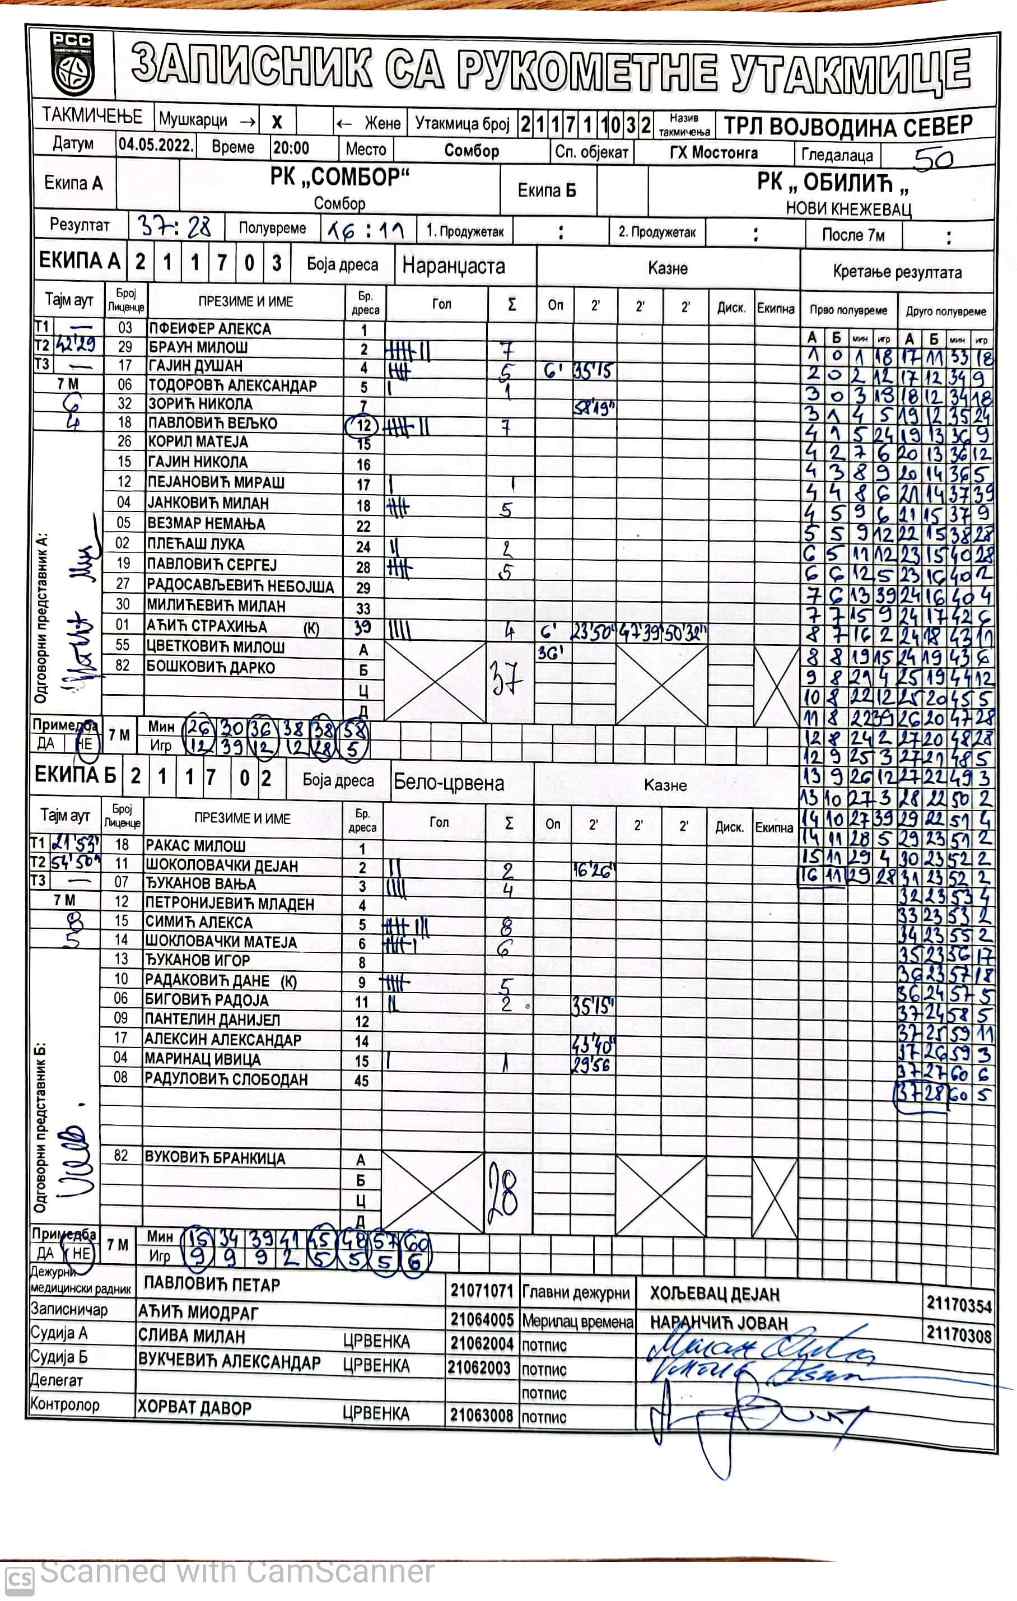 РСС
ЗАПИСНИК СА РУКОМЕТНЕ УТАКМИЦЕ
ТАКМИЧЕЊЕ Мушкарци → X ← Жене Утакмица број 211711032 Назив такмичења ТРЛ ВОЈВОДИНА СЕВЕР
Датум 04.05.2022. Време 20:00 Место Сомбор Сп. објекат ГХ Мостонга Гледалаца 50
Екипа А РК „СОМБОР“ Сомбор Екипа Б РК „ ОБИЛИЋ „ НОВИ КНЕЖЕВАЦ
Резултат 37:28 Полувреме 16:11 1. Продужетак : 2. Продужетак : После 7м :
ЕКИПА А 211703 Боја дреса Наранџаста Казне Кретање резултата
Тајм аут Број Лиценце ПРЕЗИМЕ И ИМЕ Бр. дреса Гол Σ Оп 2' 2' 2' Диск. Екипна Прво полувреме Друго полувреме
А Б мин игр А Б мин игр
Т1 — 03 ПФЕИФЕР АЛЕКСА 1
Т2 42'29 29 БРАУН МИЛОШ 2 7
Т3 — 17 ГАЈИН ДУШАН 4 5 6' 35'15
7 М 06 ТОДОРОВЋ АЛЕКСАНДАР 5 1
6 32 ЗОРИЋ НИКОЛА 7 58'19"
4 18 ПАВЛОВИЋ ВЕЉКО 12 7
26 КОРИЛ МАТЕЈА 15
15 ГАЈИН НИКОЛА 16
12 ПЕЈАНОВИЋ МИРАШ 17 1
04 ЈАНКОВИЋ МИЛАН 18 5
05 ВЕЗМАР НЕМАЊА 22
02 ПЛЕЋАШ ЛУКА 24 2
19 ПАВЛОВИЋ СЕРГЕЈ 28 5
27 РАДОСАВЉЕВИЋ НЕБОЈША 29
30 МИЛИЋЕВИЋ МИЛАН 33
01 АЋИЋ СТРАХИЊА (К) 39 4 6' 23'50" 47'39" 50'32"
55 ЦВЕТКОВИЋ МИЛОШ А 36'
82 БОШКОВИЋ ДАРКО Б 37
Ц
Д
Одговорни представник А:
Примедба ДА НЕ 7 М Мин 26 30 36 38 38 58
Игр 12 39 12 12 28 5
1 0 1 18 17 11 33 18
2 0 2 12 17 12 34 9
3 0 3 19 18 12 34 18
3 1 4 5 19 12 35 24
4 1 5 24 19 13 36 9
4 2 7 6 20 13 36 12
4 3 8 9 20 14 36 5
4 4 8 6 21 14 37 39
4 5 9 6 21 15 37 9
5 5 9 12 22 15 38 28
6 5 11 12 23 15 40 28
6 6 12 5 23 16 40 2
7 6 13 39 24 16 40 4
7 7 15 9 24 17 42 6
8 7 16 2 24 18 43 11
8 8 19 15 24 19 43 6
9 8 21 4 25 19 44 12
10 8 22 12 25 20 45 5
11 8 22 39 26 20 47 28
12 8 24 2 27 20 48 28
12 9 25 3 27 21 48 5
13 9 26 12 27 22 49 3
13 10 27 3 28 22 50 2
14 10 27 39 29 22 51 4
14 11 28 5 29 23 51 2
15 11 29 4 30 23 52 2
16 11 29 28 31 23 52 2
32 23 53 4
33 23 53 2
34 23 55 2
35 23 56 17
36 23 57 18
36 24 57 5
37 24 58 5
37 25 59 11
37 26 59 3
37 27 60 6
37 28 60 5
ЕКИПА Б 211702 Боја дреса Бело-црвена Казне
Тајм аут Број Лиценце ПРЕЗИМЕ И ИМЕ Бр. дреса Гол Σ Оп 2' 2' 2' Диск. Екипна
Т1 21'53" 18 РАКАС МИЛОШ 1
Т2 54'50" 11 ШОКОЛОВАЧКИ ДЕЈАН 2 2 16'26"
Т3 — 07 ЂУКАНОВ ВАЊА 3 4
7 М 12 ПЕТРОНИЈЕВИЋ МЛАДЕН 4
8 15 СИМИЋ АЛЕКСА 5 8
5 14 ШОКЛОВАЧКИ МАТЕЈА 6 6
13 ЂУКАНОВ ИГОР 8
10 РАДАКОВИЋ ДАНЕ (К) 9 5
06 БИГОВИЋ РАДОЈА 11 2 35'15"
09 ПАНТЕЛИН ДАНИЈЕЛ 12
17 АЛЕКСИН АЛЕКСАНДАР 14 43'40"
04 МАРИНАЦ ИВИЦА 15 1 29'56
08 РАДУЛОВИЋ СЛОБОДАН 45
82 ВУКОВИЋ БРАНКИЦА А
Б 28
Ц
Д
Одговорни представник Б:
Примедба ДА НЕ 7 М Мин 15 34 39 41 45 48 57 60
Игр 9 9 9 2 5 5 5 6
Дежурни медицински радник ПАВЛОВИЋ ПЕТАР 21071071 Главни дежурни ХОЉЕВАЦ ДЕЈАН 21170354
Записничар АЋИЋ МИОДРАГ 21064005 Мерилац времена НАРАНЧИЋ ЈОВАН 21170308
Судија А СЛИВА МИЛАН ЦРВЕНКА 21062004 потпис
Судија Б ВУКЧЕВИЋ АЛЕКСАНДАР ЦРВЕНКА 21062003 потпис
Делегат потпис
Контролор ХОРВАТ ДАВОР ЦРВЕНКА 21063008 потпис
CS Scanned with CamScanner